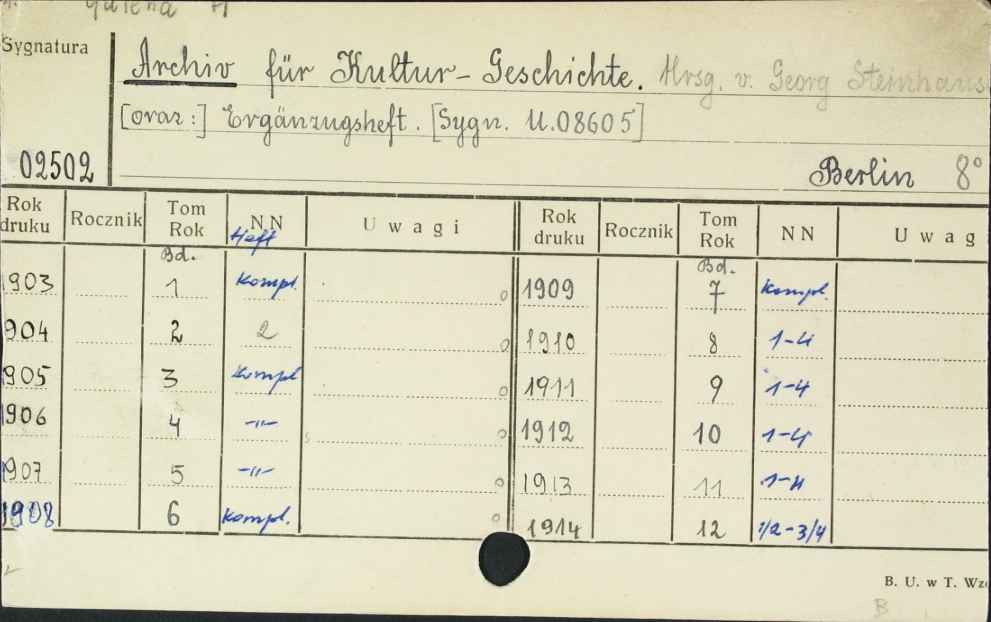 Galeria A
Sygnatura
Archiv für Kultur-Geschichte. Hrsg. v. Georg Steinhaus
[oraz:] Ergänzugsheft. [Sygn. U.08605]
02502
Berlin 8°
Rok druku Rocznik Tom Rok NN Uwagi Rok druku Rocznik Tom Rok NN Uwag
Bd. Heft Bd.
1903 1 Kompl. 1909 7 Kompl.
1904 2 2 1910 8 1-4
1905 3 Kompl 1911 9 1-4
1906 4 -"- 1912 10 1-4
1907 5 -"- 1913 11 1-4
1908 6 Kompl. 1914 12 1/2-3/4
B. U. w T. Wz
B